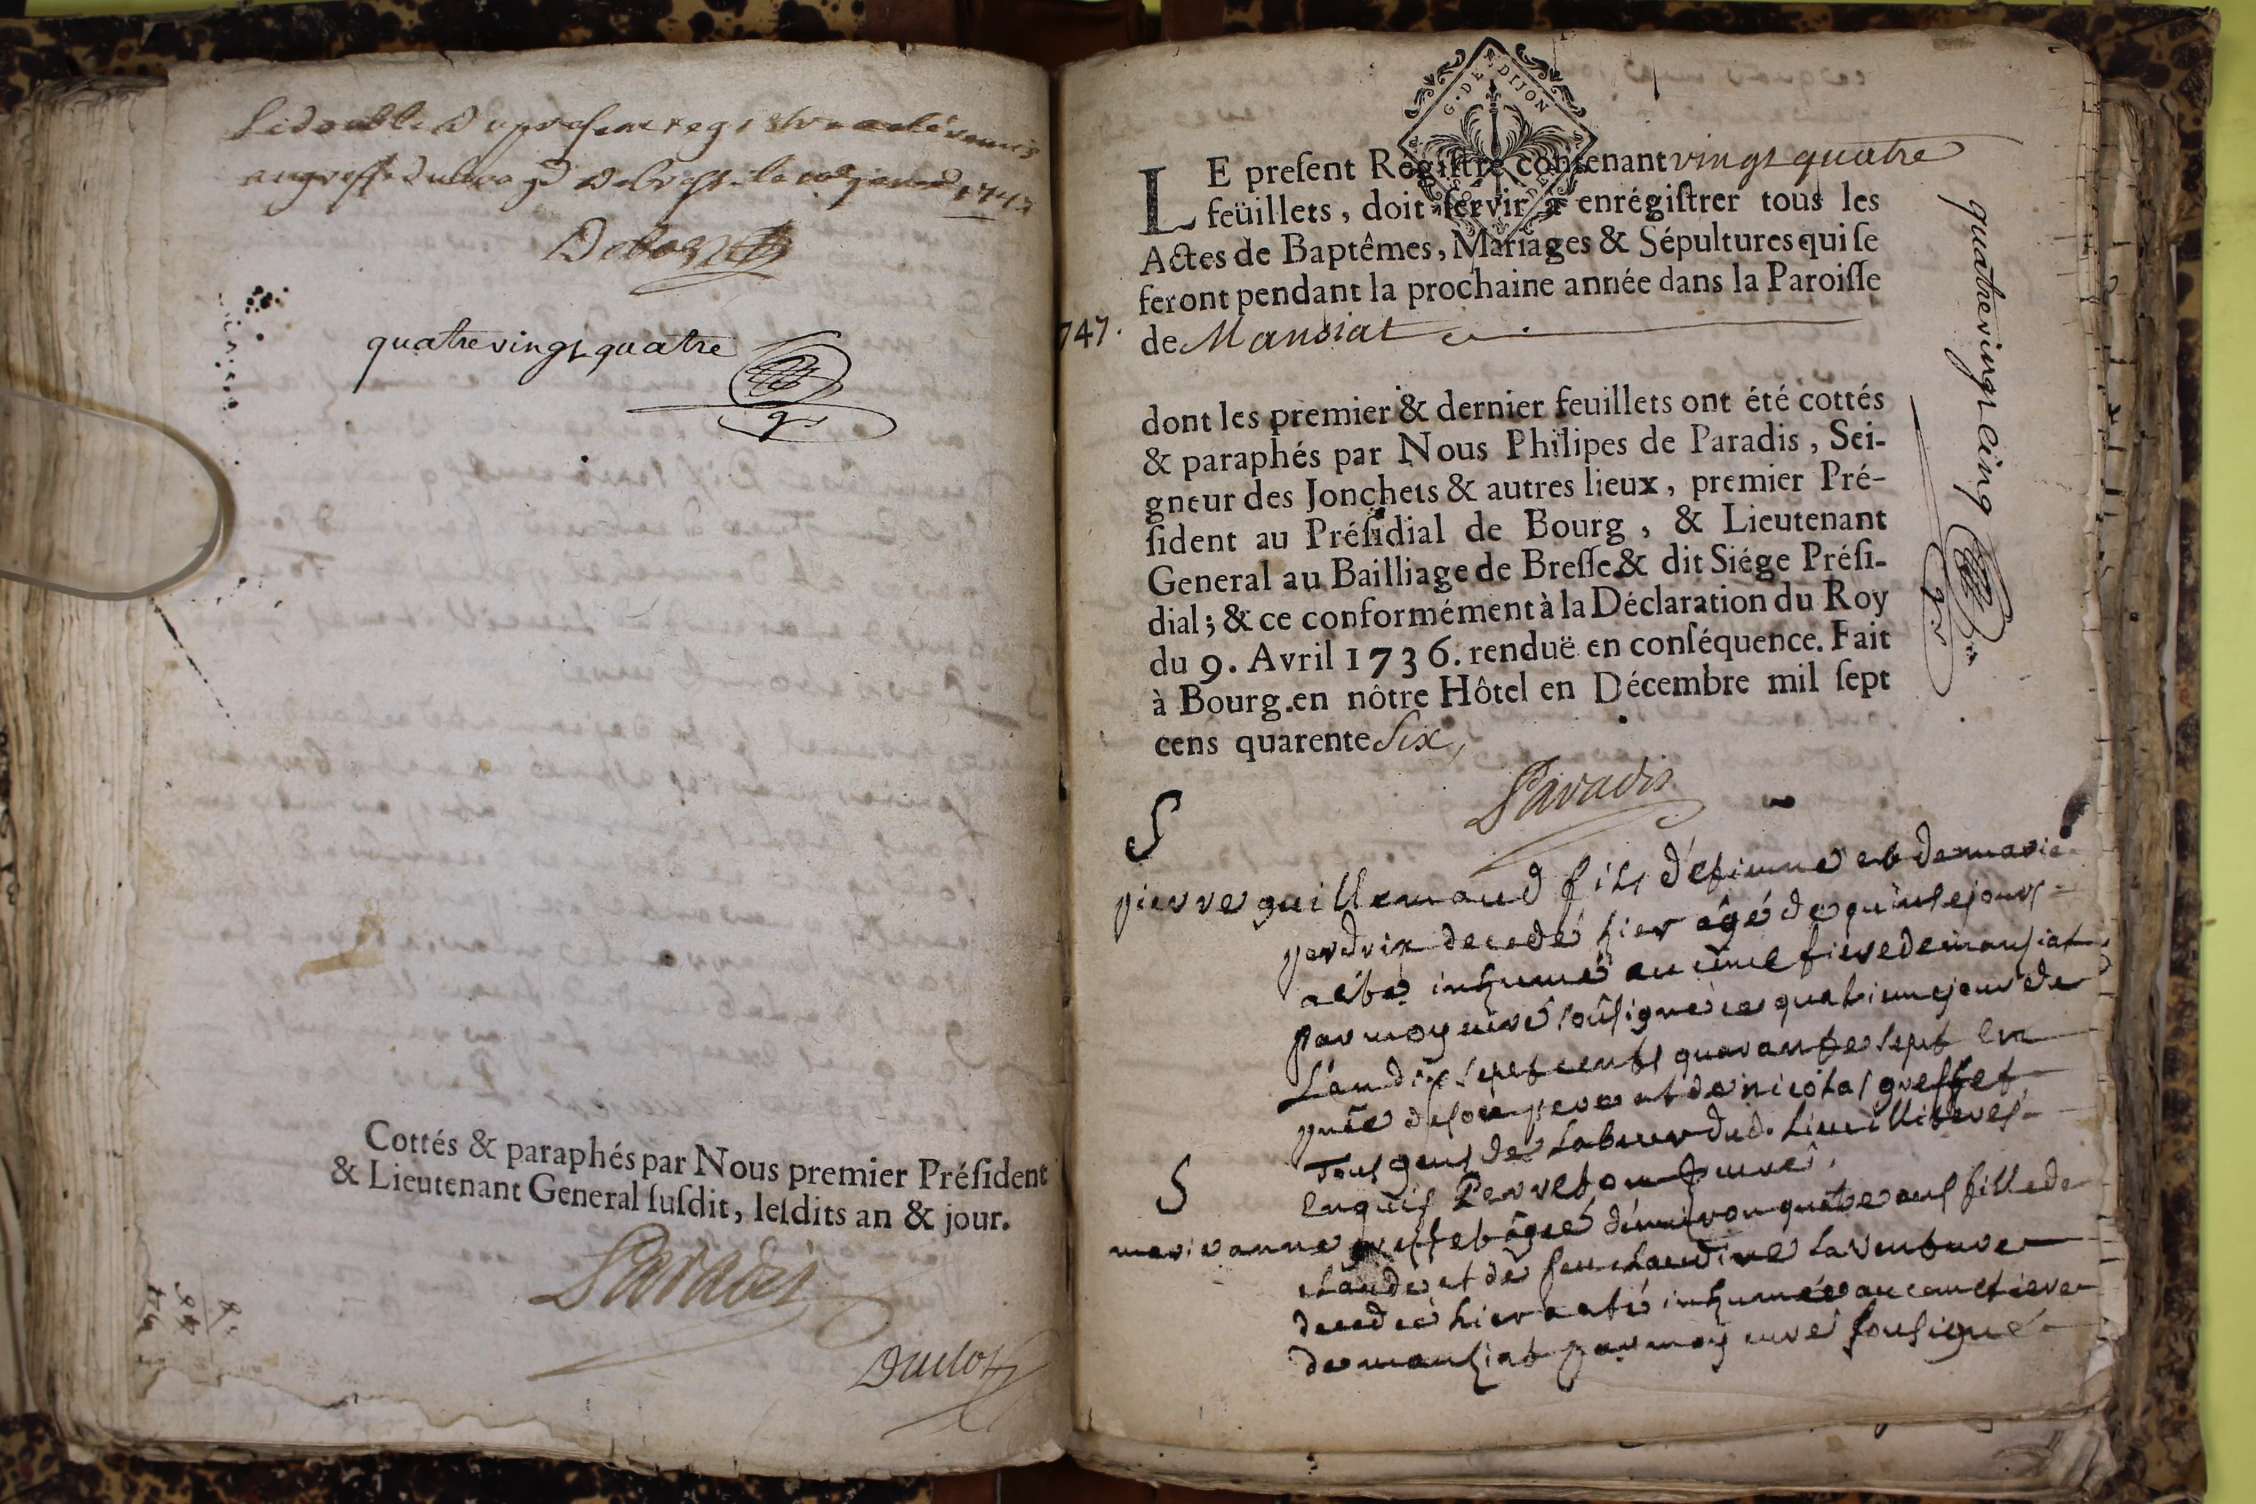 Le double du present registre a eté remis
au greffe du bailliage de Bresse le janvier 1747
quatrevingt quatre
Cottés & paraphés par Nous premier Préſident
& Lieutenant General ſuſdit, leſdits an & jour.
Paradis
Duclos
G. DE DIJON
LE preſent Regiſtre contenant vingt quatre
feüillets, doit ſervir à enrégiſtrer tous les
Actes de Baptêmes, Mariages & Sépultures qui ſe
feront pendant la prochaine année dans la Paroiſſe
747.
de Mansiat
dont les premier & dernier feuillets ont été cottés
& paraphés par Nous Philipes de Paradis, Sei-
gneur des Jonchets & autres lieux, premier Pré-
ſident au Préſidial de Bourg, & Lieutenant
General au Bailliage de Breſſe & dit Siége Préſi-
dial; & ce conformément à la Déclaration du Roy
du 9. Avril 1736. renduë en conſéquence. Fait
à Bourg en nôtre Hôtel en Décembre mil ſept
cens quarente Six,
Paradis
quatrevingt cinq
S
pierre guillemaud fils d'etienne et de marie
perdrix decedé hier âgé de quinse jours
a été inhumé au cimetiere de mansiat
par moy curé soûsigné ce quatrieme jour de
L'an dix sept cents quarante sept en
pñce de son pere et de nicolas greffet
Tous gens de Labeur dud. Lieu illiteres
enquis Perreton curé.
S
marianne greffet âgée d'environ quatre ans fille de
claude et de feu claudine Laventure
decedée hier a eté inhumée au cimetiere
de mansiat par moy curé sousigné